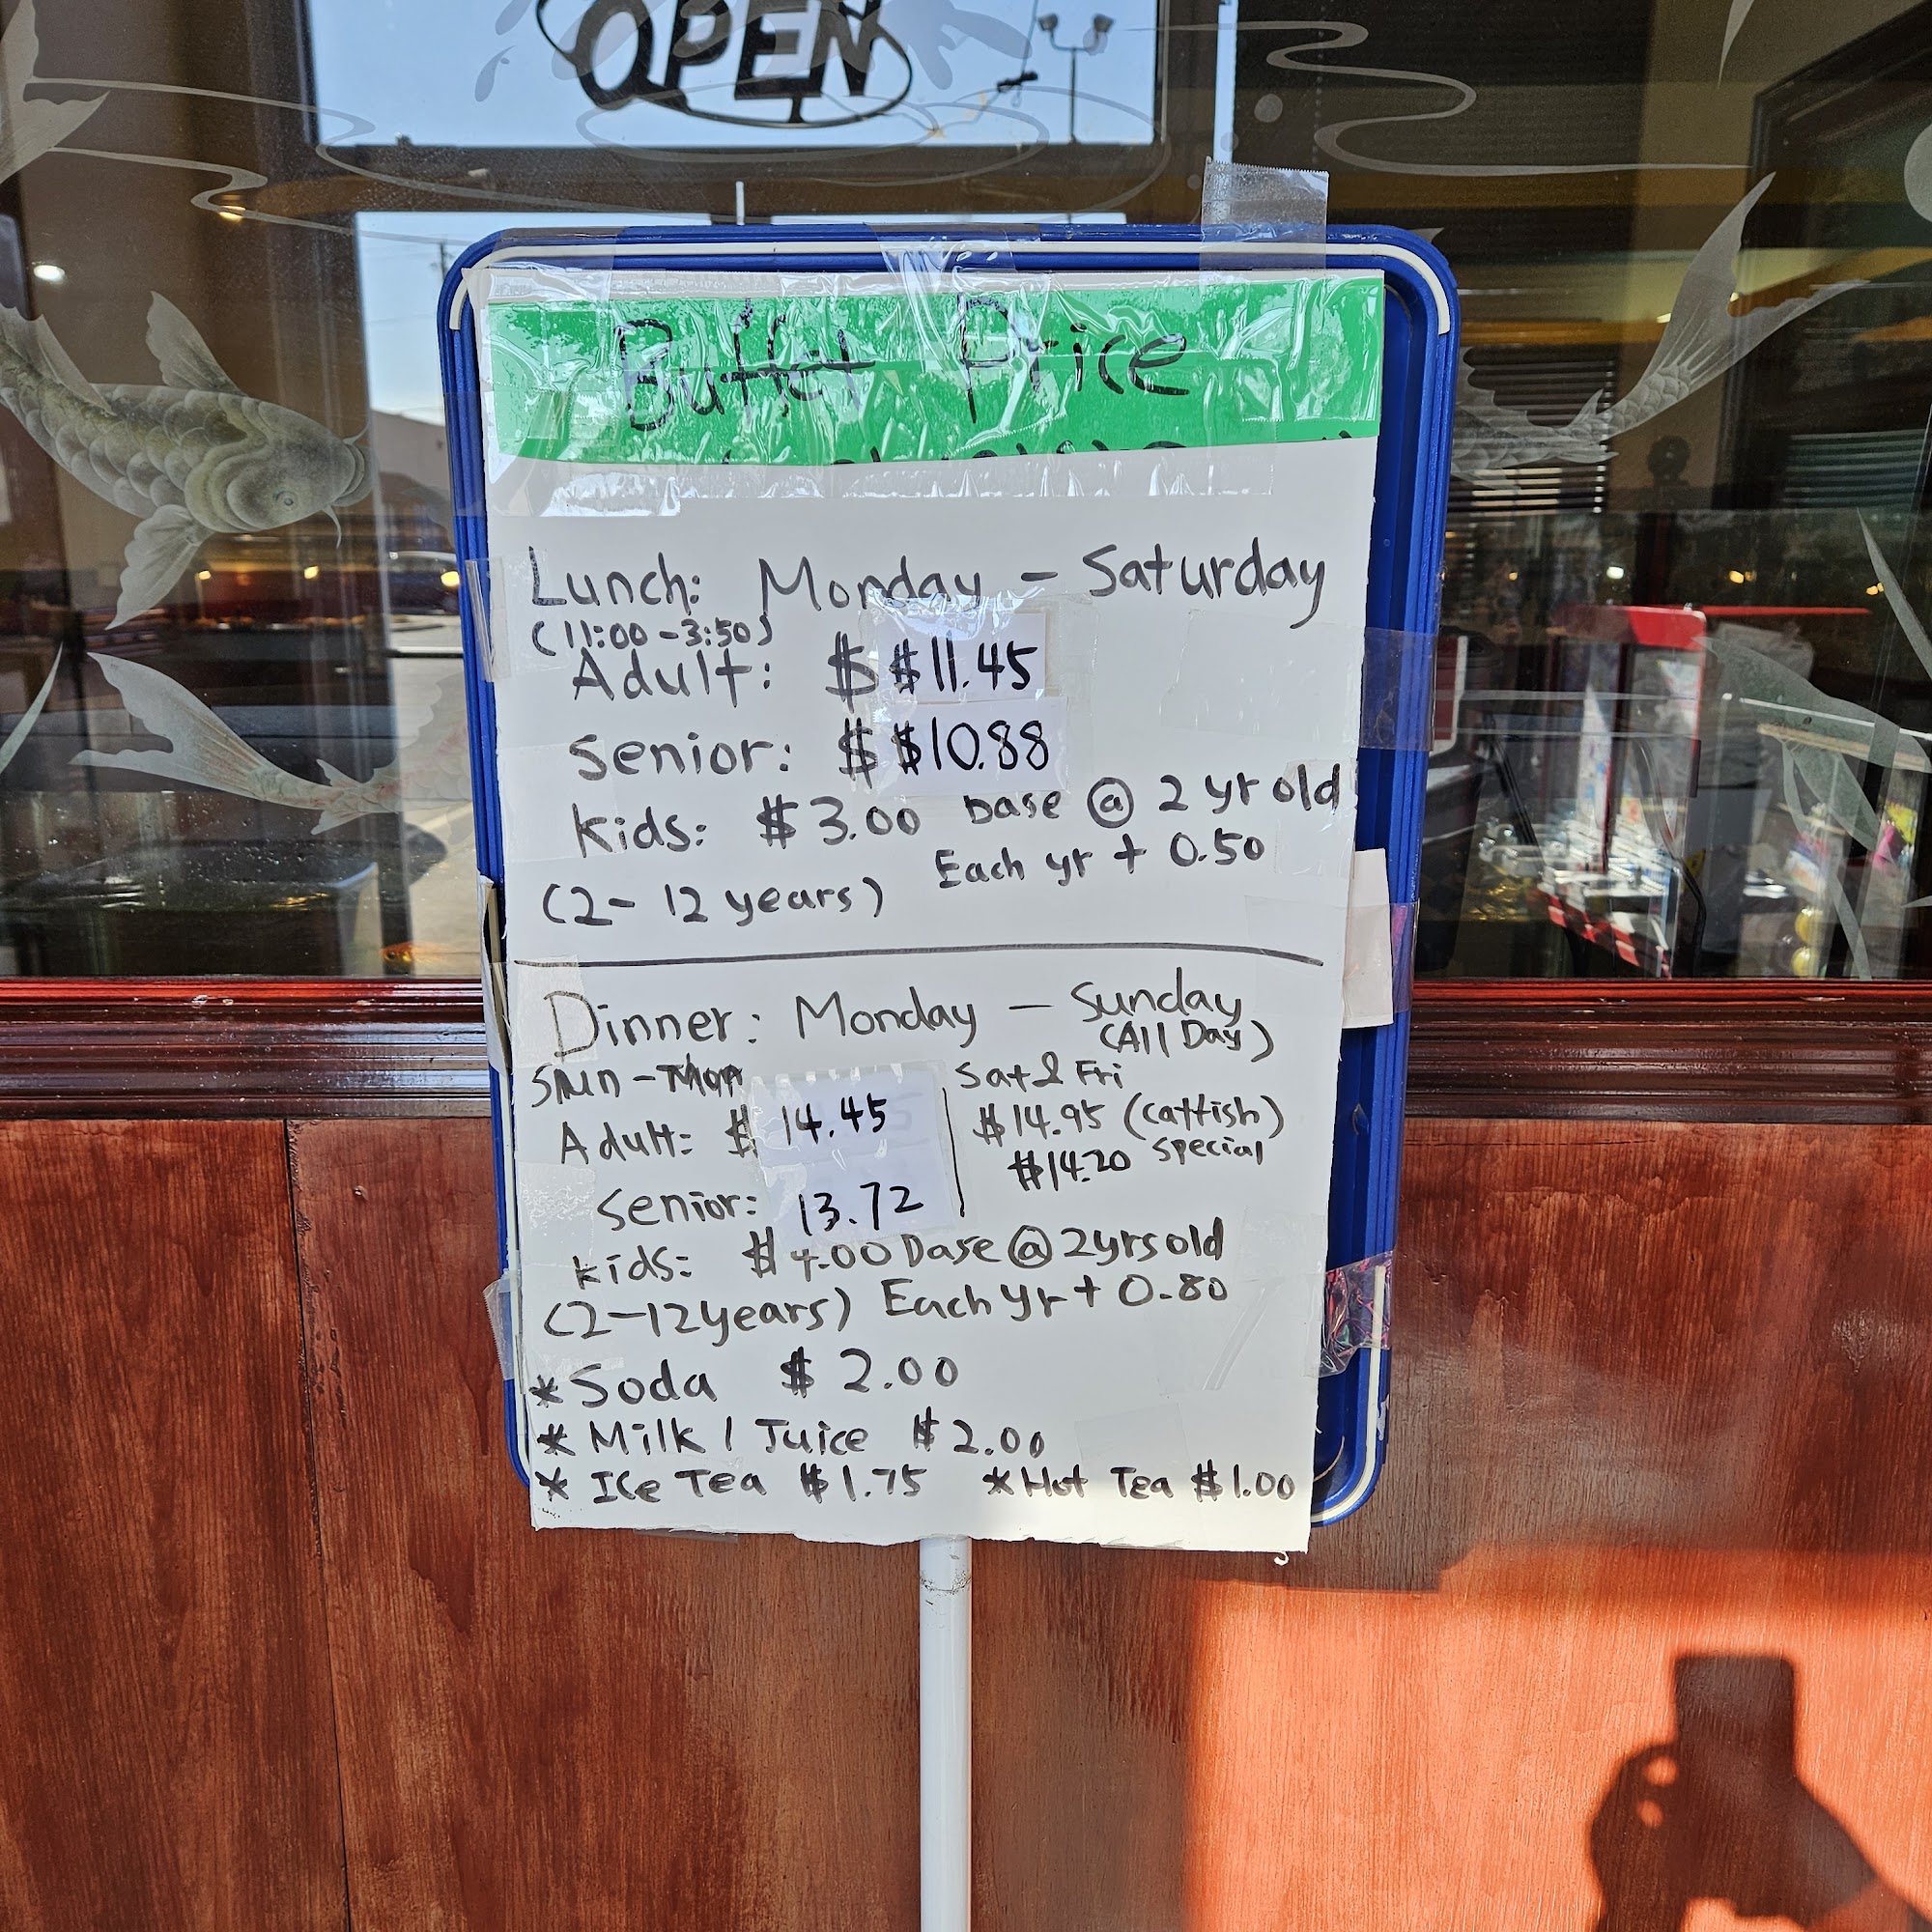 OPEN
Buffet Price
Lunch: Monday - Saturday
(11:00-3:50)
Adult: $ $11.45
Senior: $ $10.88
Kids: $3.00 base @ 2 yr old
Each yr + 0.50
(2-12 years)
Dinner: Monday - Sunday
(All Day)
Sun - Mon Sat & Fri
Adult: $ 14.45 $14.95 (catfish)
$14.20 special
Senior: 13.72
Kids: $4.00 Base @ 2yrs old
(2-12 years) Each yr + 0.80
* Soda $2.00
* Milk / Juice $2.00
* Ice Tea $1.75 * Hot Tea $1.00